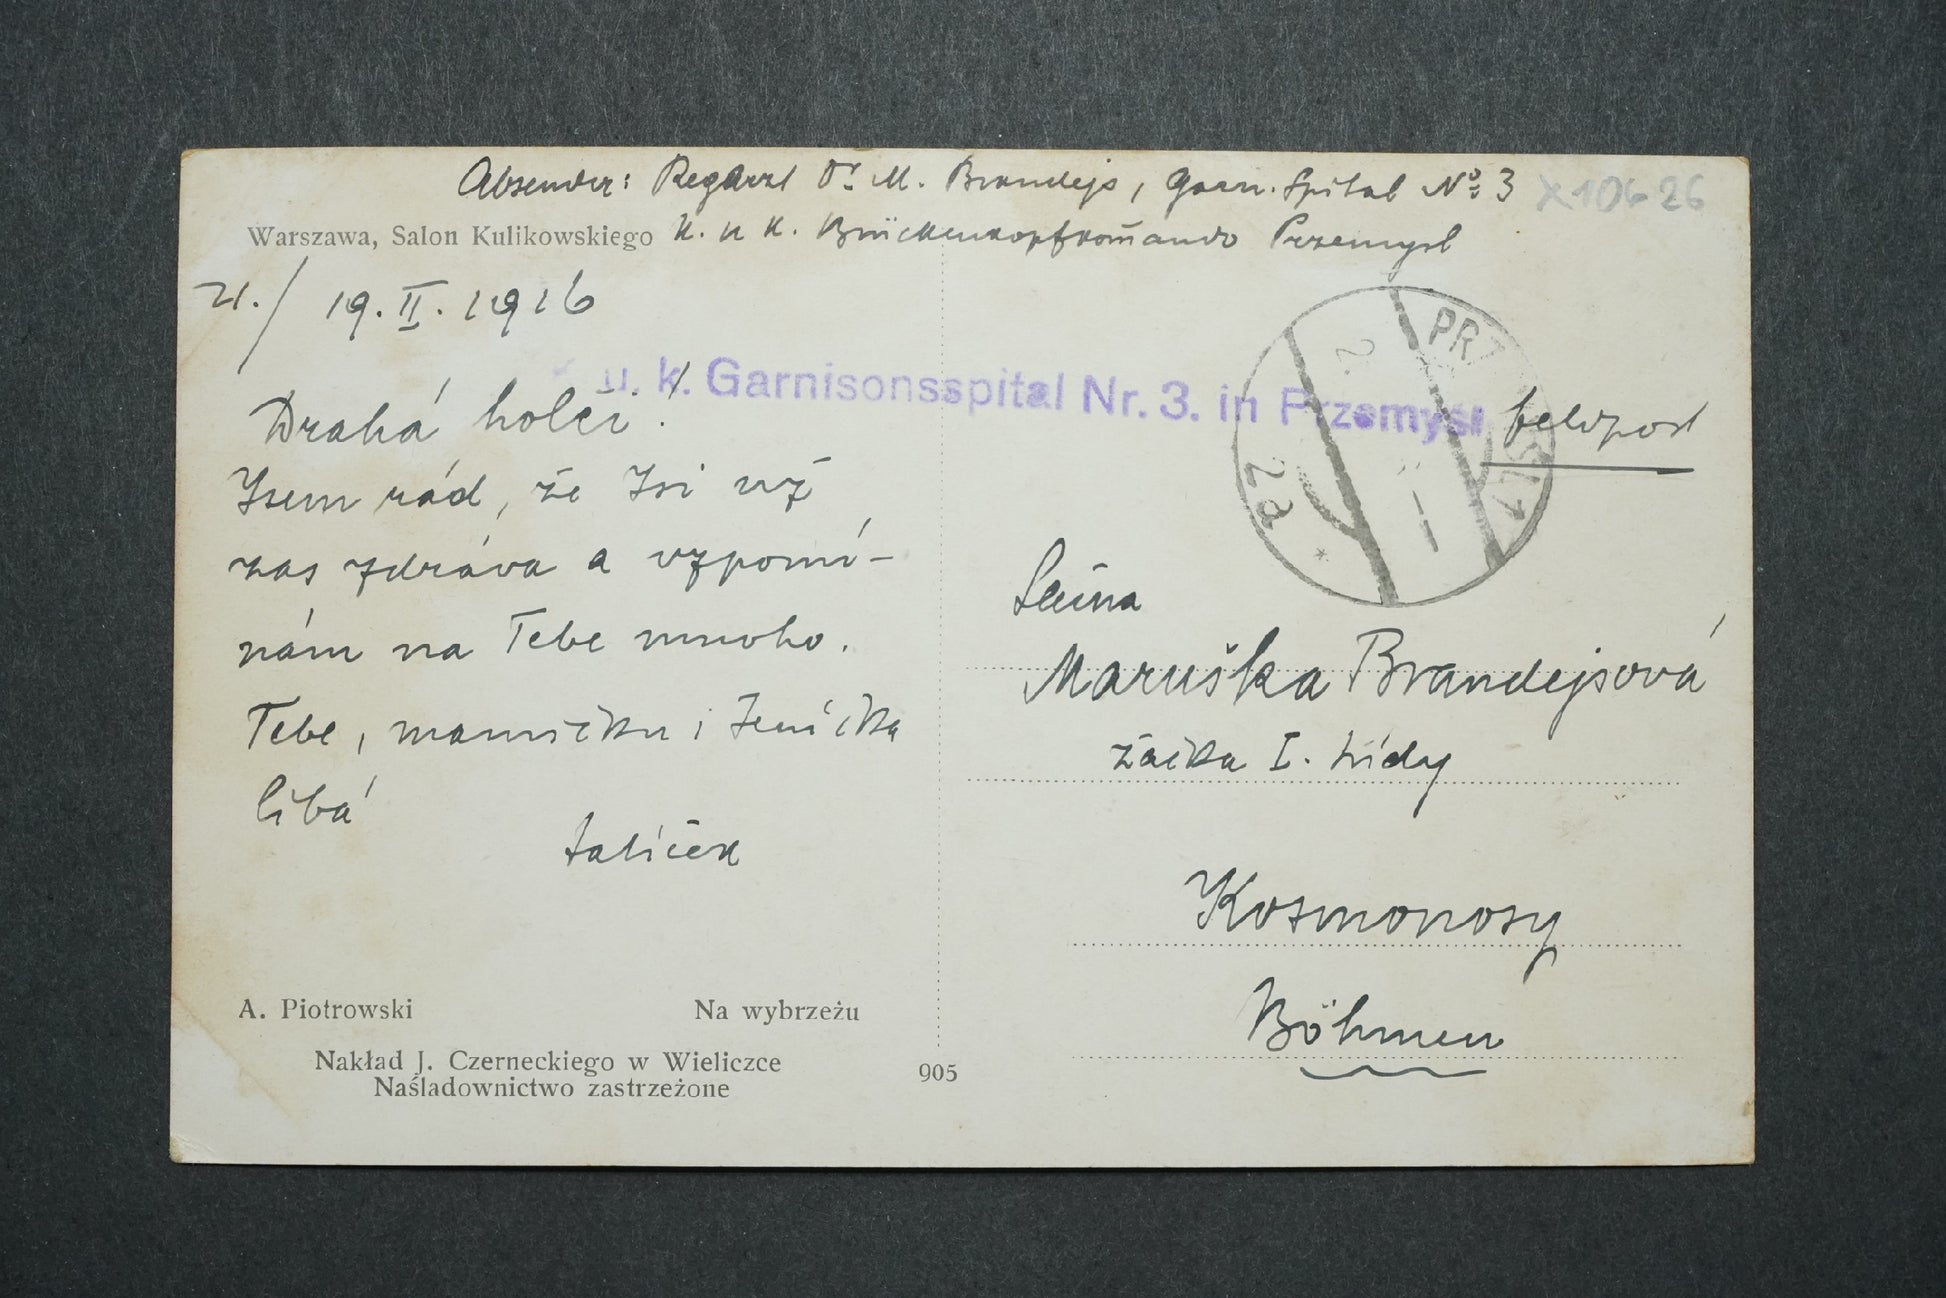 Absender: Regarzt Dr M. Brandejs, Garn. Spital No 3
X10626
Warszawa, Salon Kulikowskiego
K. u K. Brückenkopfkom̄ando Przemysl
21./ 19. II. 1916
u. k. Garnisonsspital Nr. 3. in Przemyśl
feldpost
PRZ
2a
Drahá holči!
Jsem rád, že Jsi už
zas zdráva a vzpomí-
nám na Tebe mnoho.
Tebe, mamičku i Jeníčka
líbá
tatíček
Slečna
Maruška Brandejsová
žačka I. třídy
Kosmonosy
Böhmen
A. Piotrowski
Na wybrzeżu
Nakład J. Czerneckiego w Wieliczce
Naśladownictwo zastrzeżone
905